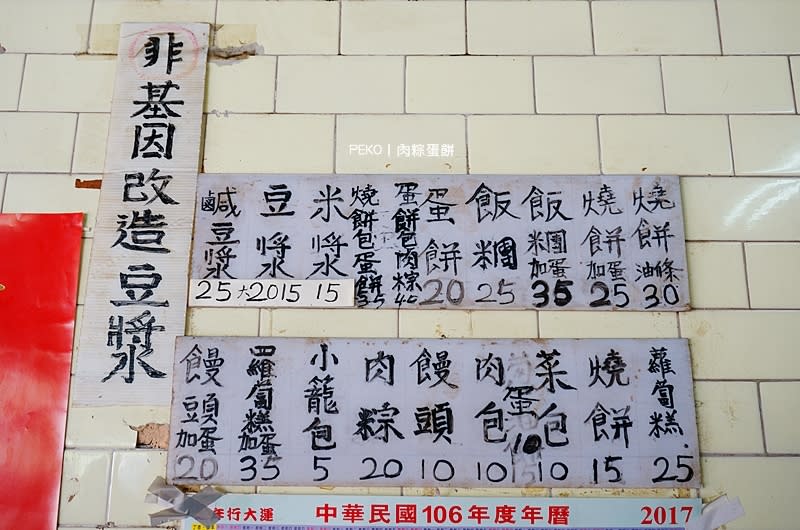 非基因改造豆漿
PEKO | 肉粽蛋餅
鹹豆漿 25
豆漿 大20 15
米漿 15
燒餅包蛋餅 35
蛋餅包肉粽 40
蛋餅 20
飯糰 25
飯糰加蛋 35
燒餅加蛋 25
燒餅油條 30
饅頭加蛋 20
羅蔔糕加蛋 35
小籠包 5
肉粽 20
饅頭 10
肉包 10
蛋 10
菜包 10
燒餅 15
蘿蔔糕 25
年行大運 中華民國106年度年曆 2017